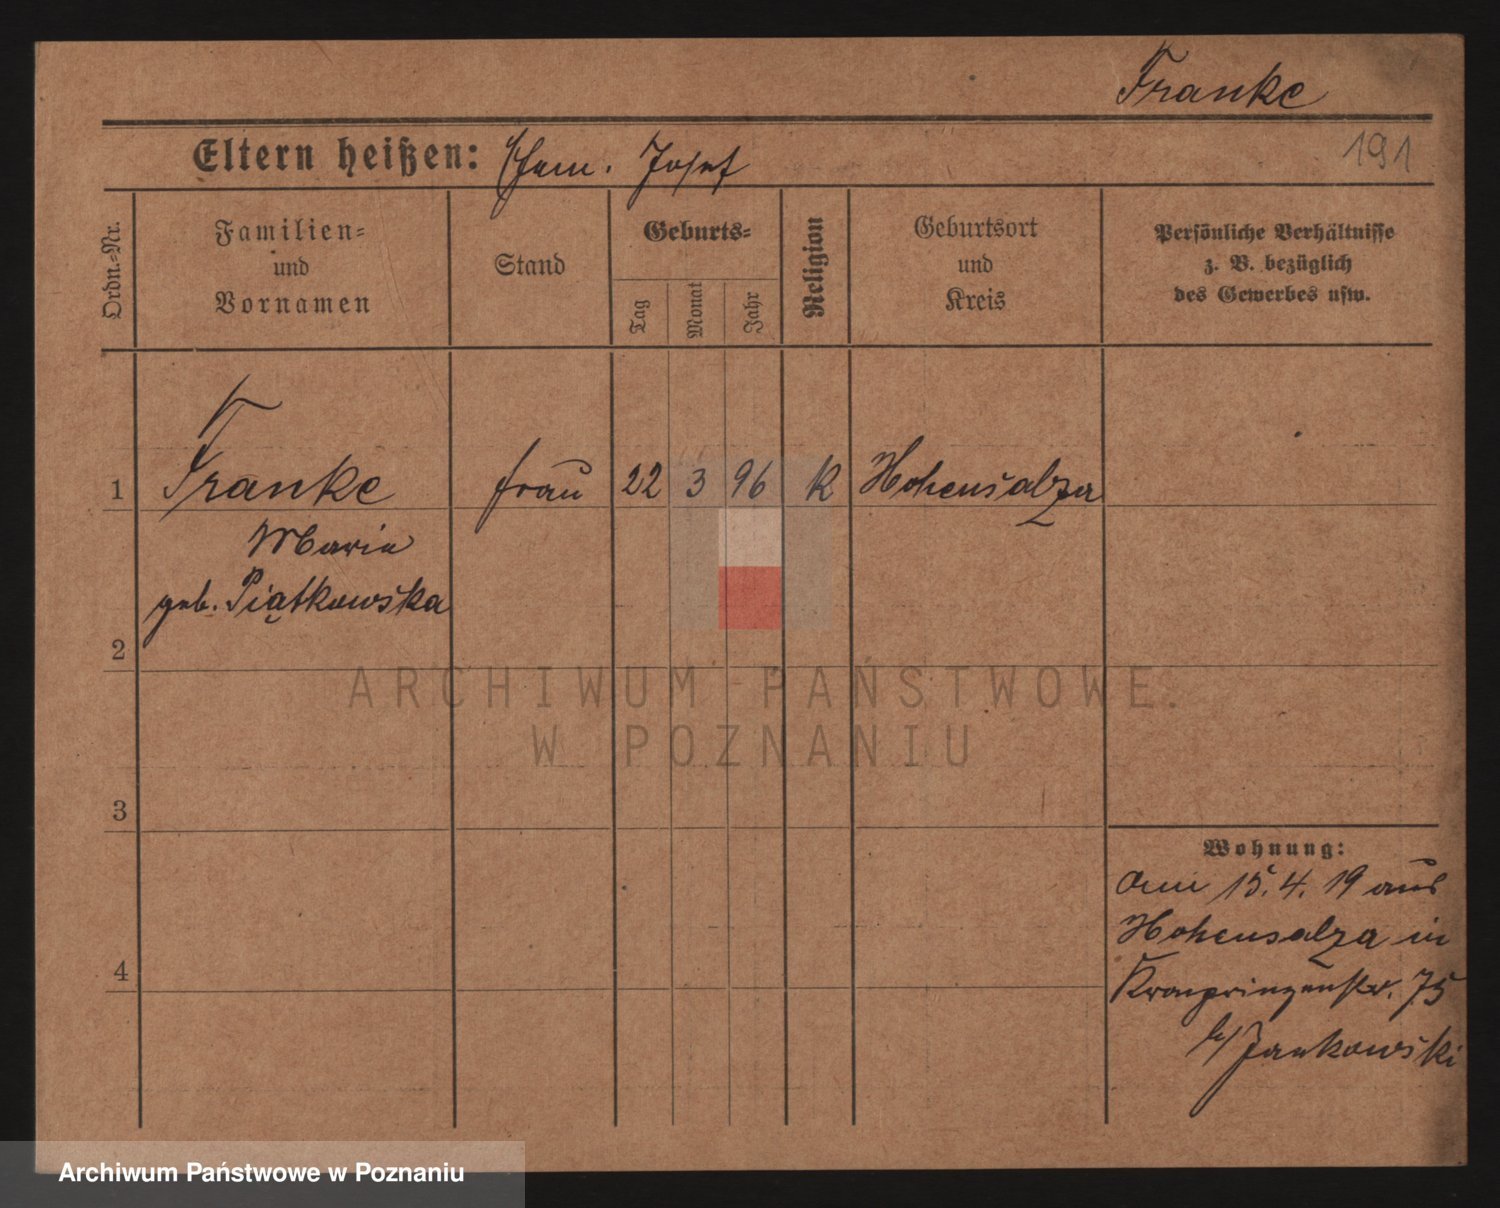 Franke
191
Eltern heißen: Ehem. Josef
Ordn.-Nr.
Familien-
und
Vornamen
Stand
Geburts-
Tag
Monat
Jahr
Religion
Geburtsort
und
Kreis
Persönliche Verhältnisse
z. B. bezüglich
des Gewerbes usw.
1 Franke frau 22 3 96 k Hohensalza
Marie
geb. Piątkowska
2
ARCHIWUM PAŃSTWOWE
W POZNANIU
3
Wohnung:
15.4.19 aus
Hohensalza in
4
Kronprinzenstr. 75
b/ Jankowski
Archiwum Państwowe w Poznaniu